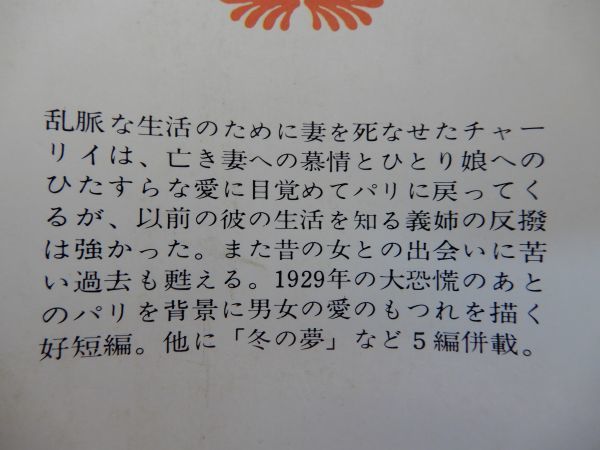 乱脈な生活のために妻を死なせたチャー
リイは、亡き妻への慕情とひとり娘への
ひたすらな愛に目覚めてパリに戻ってく
るが、以前の彼の生活を知る義姉の反撥
は強かった。また昔の女との出会いに苦
い過去も甦える。1929年の大恐慌のあと
のパリを背景に男女の愛のもつれを描く
好短編。他に「冬の夢」など5編併載。